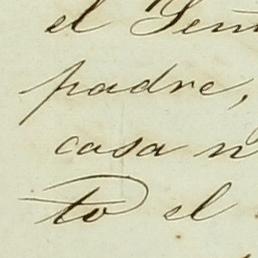 el Señ
padre,
casa n
to el